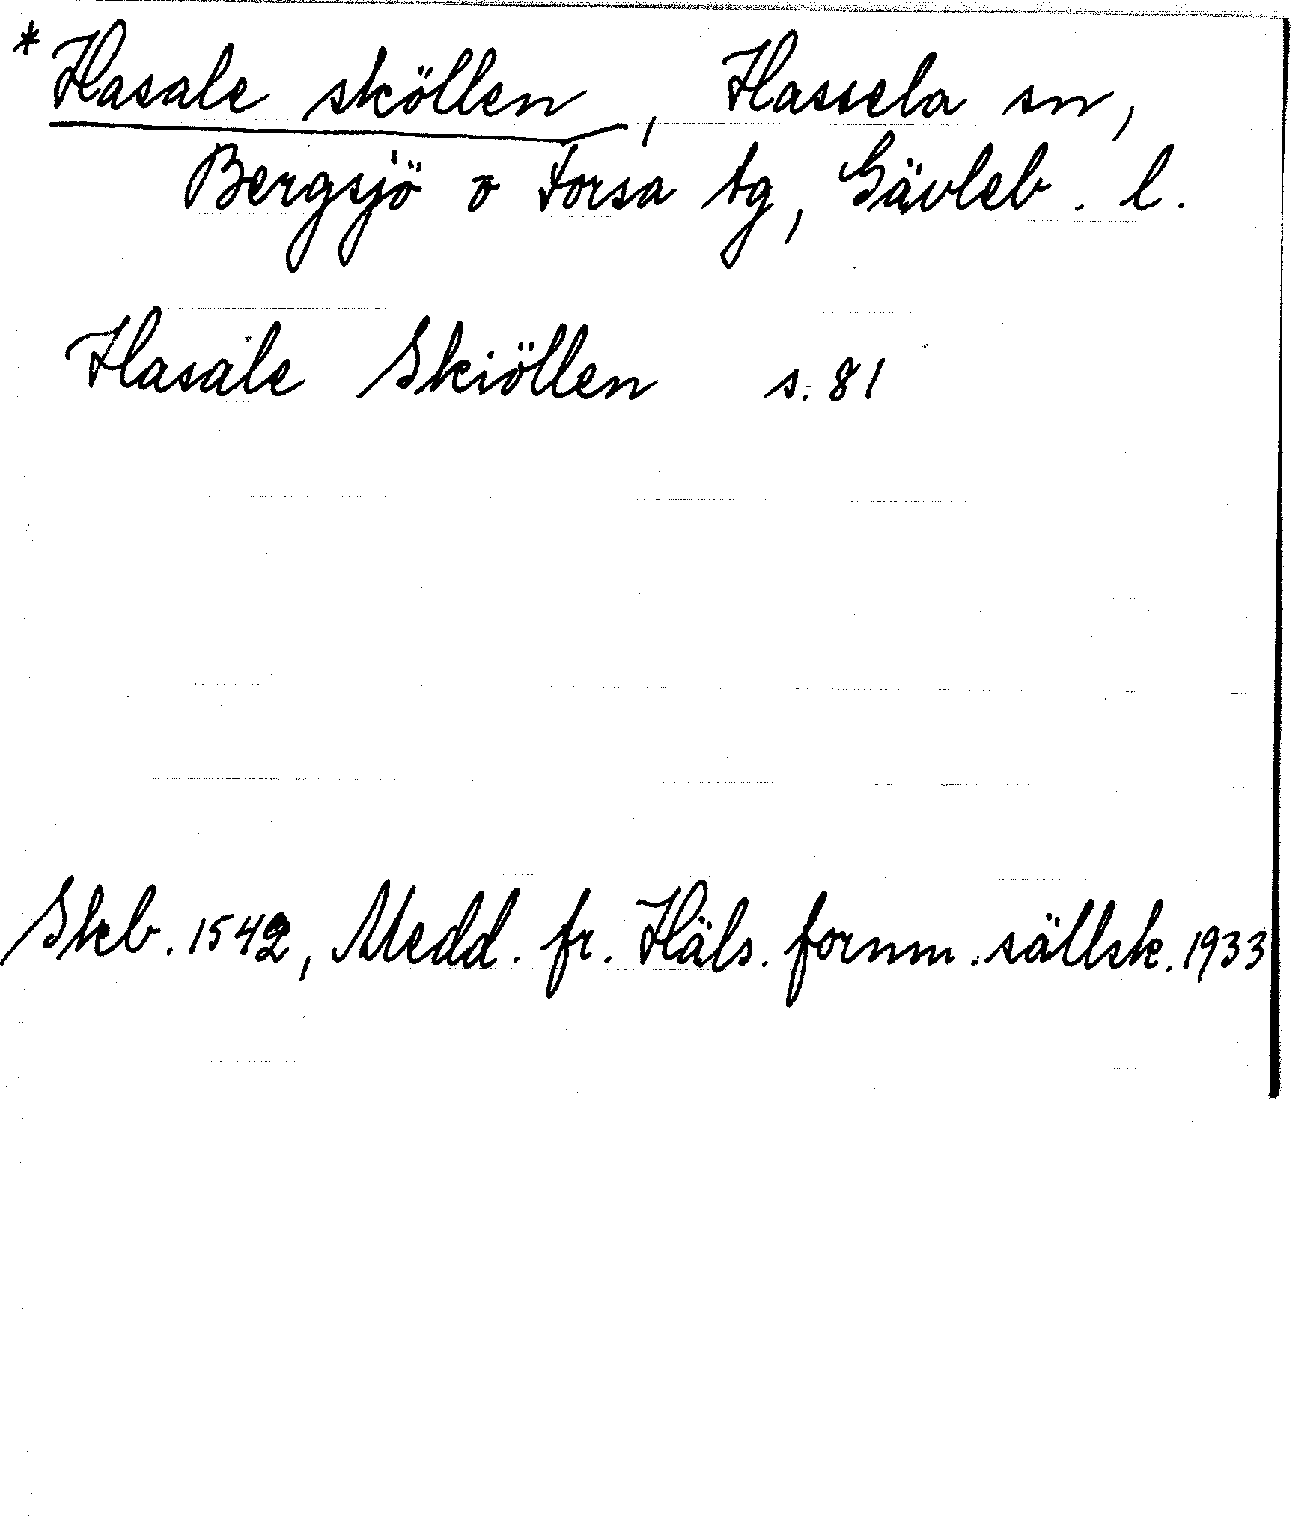 *Hasale sköllen, Hassela sn,
Bergsjö o Forsa tg, Gävleb. l.
Hasale Skiöllen s. 81
Skb. 1542, Medd. fr. Häls. fornm. sällsk. 1933